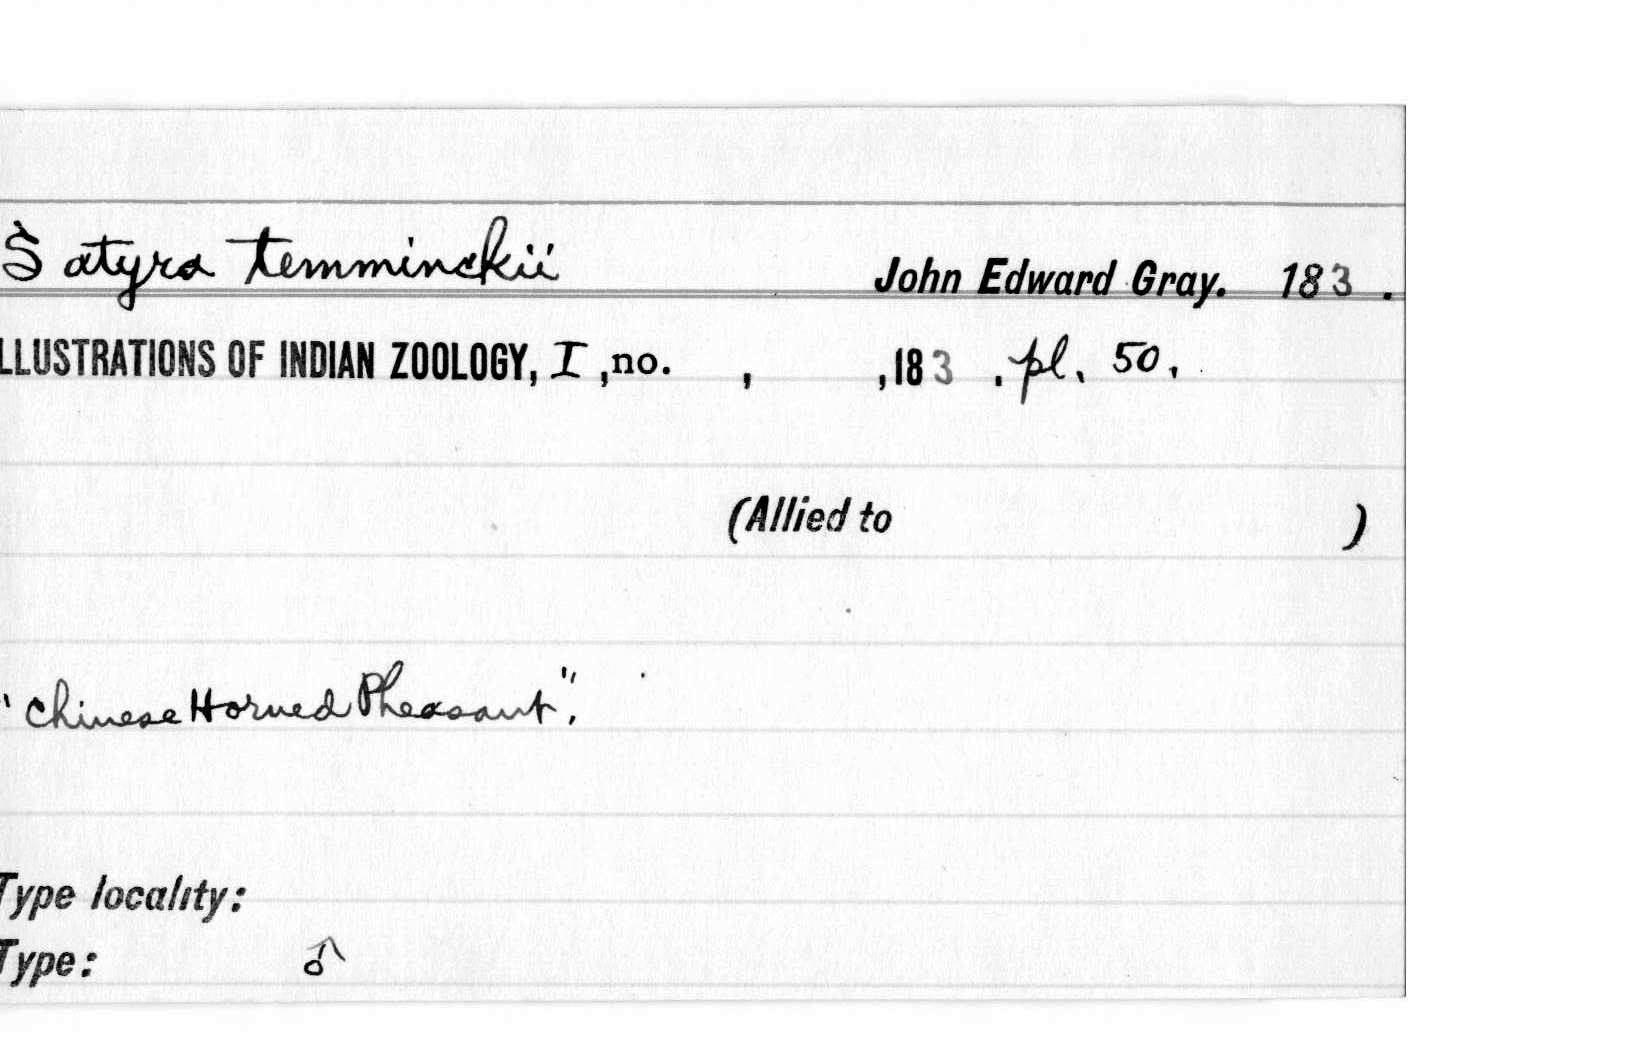 Satyra temminckii John Edward Gray. 183 .
LLUSTRATIONS OF INDIAN ZOOLOGY, I ,no. , ,183 . pl. 50.
(Allied to )
"Chinese Horned Pheasant".
Type locality:
Type: ♂